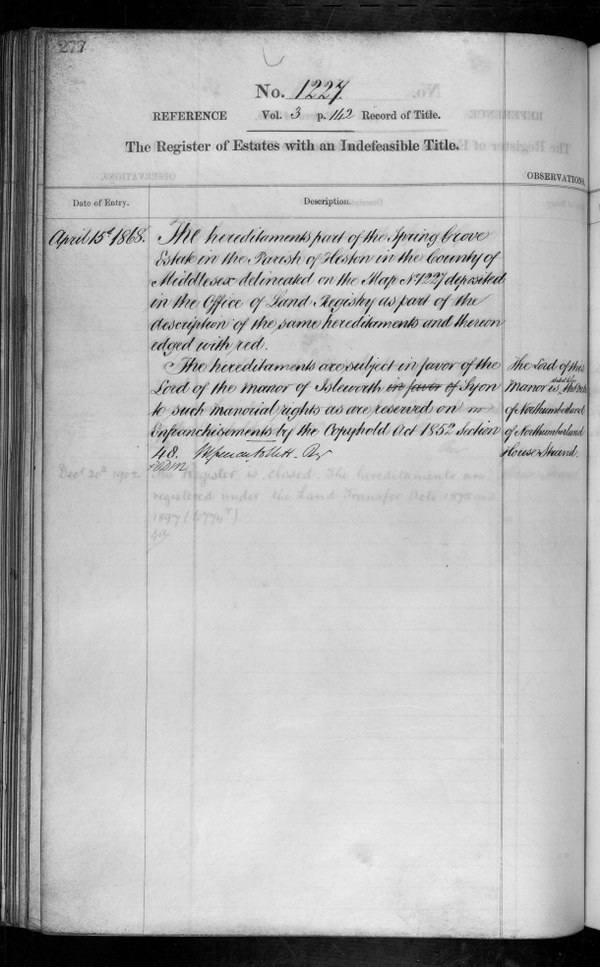 277
No. 1227
REFERENCE Vol. 3 p. 142 Record of Title.
The Register of Estates with an Indefeasible Title.
OBSERVATIONS.
Date of Entry. Description.
April 15th 1868. The hereditaments part of the Spring Grove
Estate in the Parish of Heston in the County of
Middlesex delineated on the Map No 1227 deposited
in the Office of Land Registry as part of the
description of the same hereditaments and thereon
edged with red.
The hereditaments are subject in favor of the
Lord of the Manor of Isleworth in favor of Syon
to such manorial rights as are reserved on
Enfranchisements by the Copyhold Act 1852 Section
48. Reg
The Lord of this
Manor is the Duke
of Northumberland
of Northumberland
House Strand.
Decr 20th 1902 The Register is closed. The hereditaments are
registered under the Land Transfer Acts 1875 and
1897